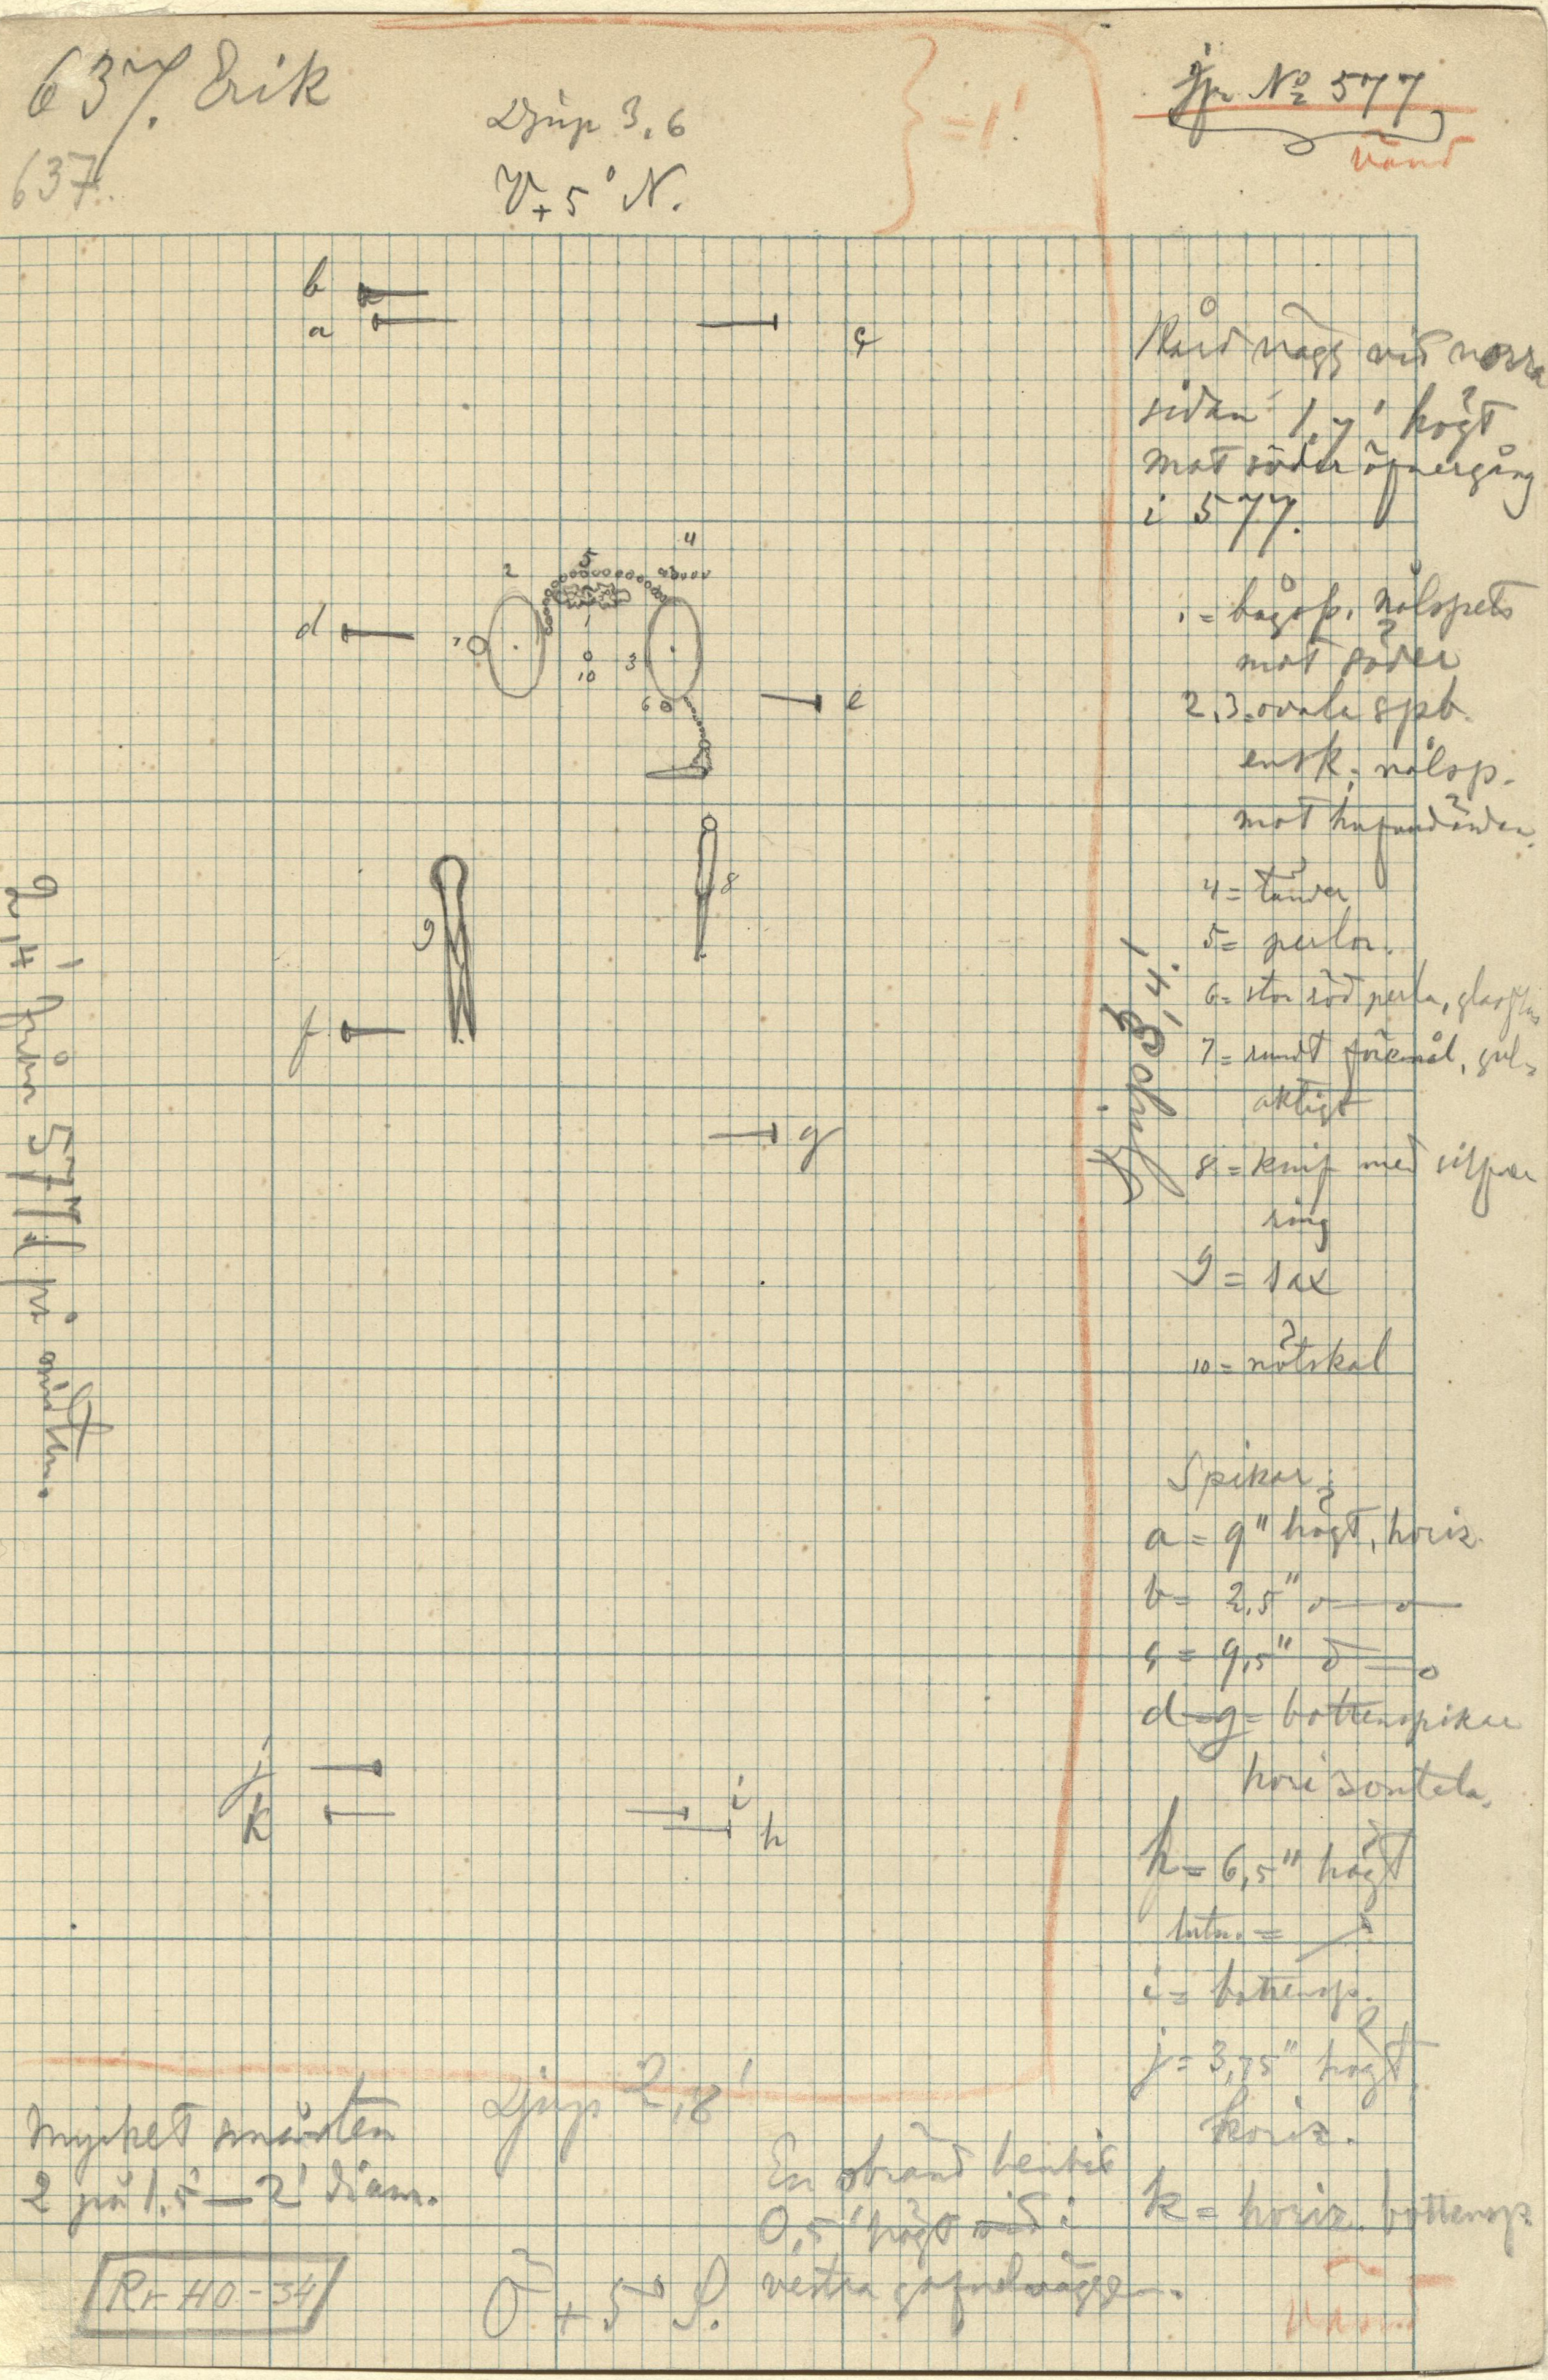 637. Erik
637.
Djup 3,6
V + 5° N.
= 1'
Jfr No 577
vänd
b
a
c
Hård vägg vid norra
sidan 1,7' högt
mot söder öfvergång
i 577.
4
5
2
1
d
7
10
3
6
e
8
9
f
g
1 = bågsp. nålspets
mot söder
2,3 = ovala spb.
ensk; nålsp.
mot hufvudändan.
4 = tänder
5 = perlor.
6 = stor röd perla, glasflus
7 = rundt föremål, gul-
aktigt
8 = knif med silfver
ring
9 = sax
10 = nötskal
2,4' från 577 på midten.
Djup 3,4'
Spikar:
a = 9" högt, horiz.
b = 2,5" d—o
c = 9,5" d—o
d–g = bottenspikar
horisontela.
h = 6,5" högt
lutn. =
i = bottensp.
j = 3,75" högt,
horiz.
k = horiz. bottensp.
j
k
i
h
Mycket småsten
2 på 1,5'–2' diam.
Djup 2,8'
En obränd benbit
0,5' högt i
vestra gafvelväggen.
Ö + 5° S.
Rr HO-34
vänd